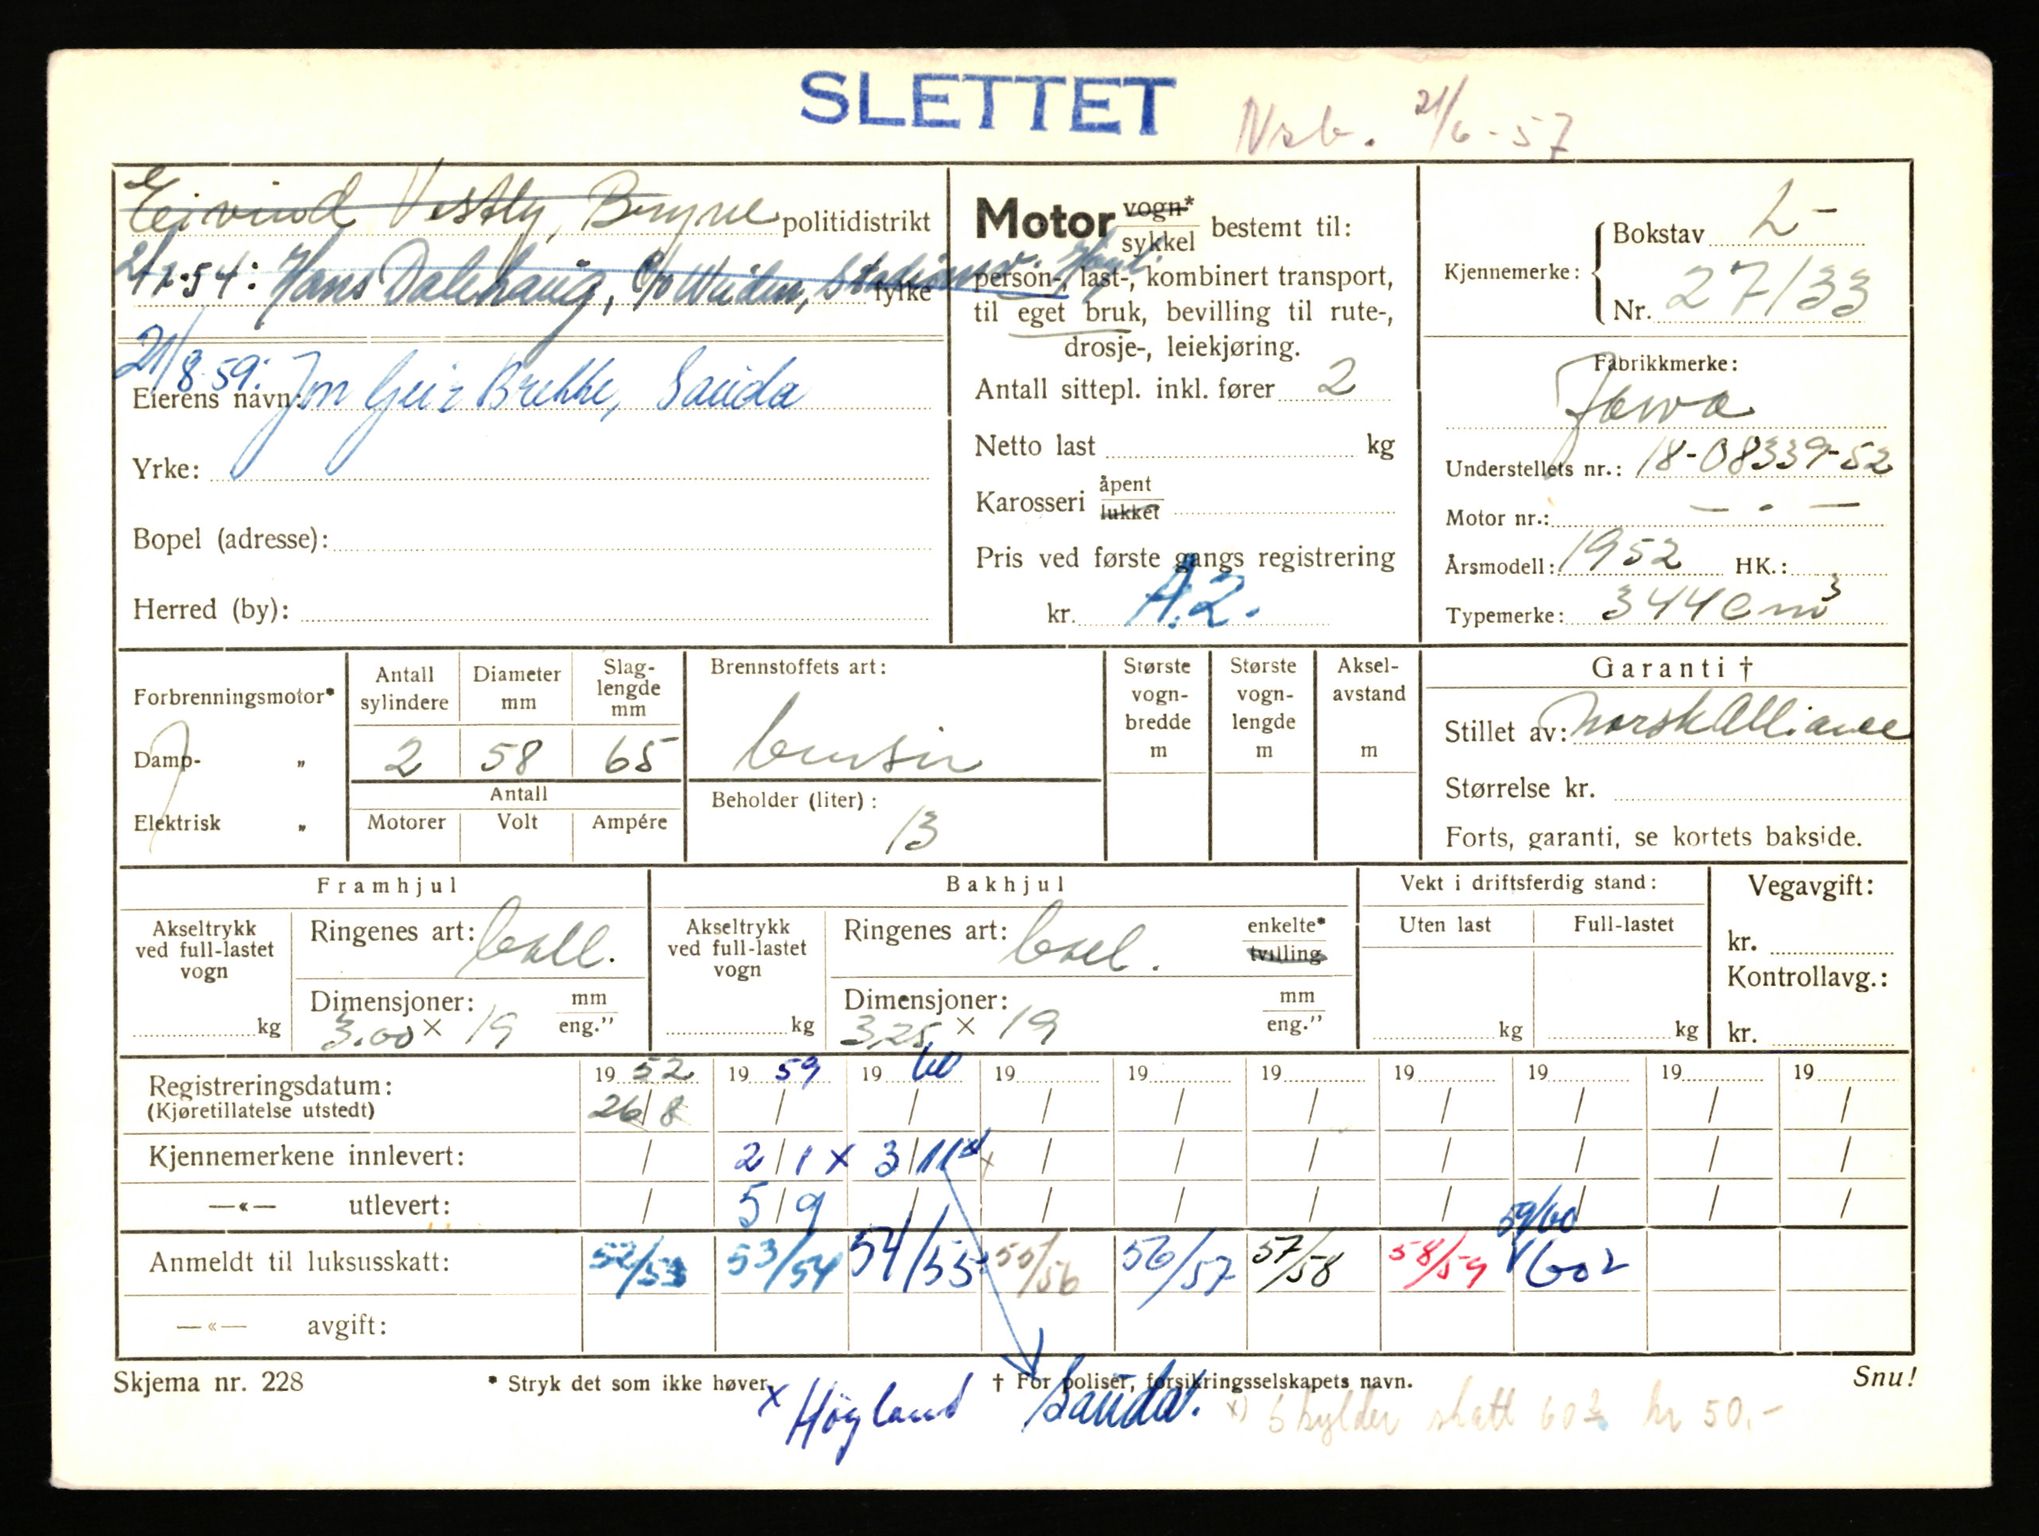 SLETTET
21/6-57
Eivind Vestly, Bryne politidistrikt
-54: Hans Dalehaug, c/o fylke
21/8 59: Eierens navn: Jon Geir Brekke, Sauda
Yrke:
Bopel (adresse):
Herred (by):
Motor vogn* sykkel bestemt til:
person-, last-, kombinert transport,
til eget bruk, bevilling til rute-,
drosje-, leiekjøring.
Antall sittepl. inkl. fører 2
Netto last kg
Karosseri åpent lukket
Pris ved første gangs registrering
kr. A.2.
Kjennemerke: Bokstav L-
Nr. 27133
Fabrikkmerke:
Jawa
Understellets nr.: 18-08339-52
Motor nr.: — . —
Årsmodell: 1952 HK.:
Typemerke: 344 cm3
Forbrenningsmotor*
Damp- "
Elektrisk "
Antall sylindere Diameter mm Slag-lengde mm
2 58 65
Antall
Motorer Volt Ampére
Brennstoffets art:
bensin
Beholder (liter):
13
Største vogn-bredde m
Største vogn-lengde m
Aksel-avstand m
Garanti †
Stillet av: Norsk Alliance
Størrelse kr.
Forts, garanti, se kortets bakside.
Framhjul
Akseltrykk ved full-lastet vogn kg
Ringenes art: ball.
Dimensjoner: mm eng."
3.00 × 19
Bakhjul
Akseltrykk ved full-lastet vogn kg
Ringenes art: ball. enkelte* tvilling
Dimensjoner: mm eng."
3,25 × 19
Vekt i driftsferdig stand:
Uten last Full-lastet
kg kg
Vegavgift:
kr.
Kontrollavg.:
kr.
Registreringsdatum: 19 52 19 59 19 60 19 19 19 19 19 19 19
(Kjøretillatelse utstedt) 26/8 / / / / / / / / /
Kjennemerkene innlevert: / 2/1 x 3/11 x / / / / / / /
—«— utlevert: / 5/9 / / / / / / / /
59/60
Anmeldt til luksusskatt: 52/53 53/54 54/55 55/56 56/57 57/58 58/59
—«— avgift:
Skjema nr. 228 * Stryk det som ikke høver † For poliser, forsikringsselskapets navn. Snu!
x Høyland Sauda. x) skylder skatt 60 kr 50.-